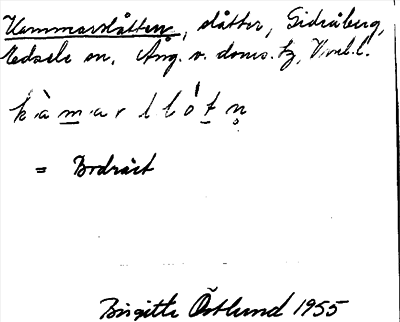 Kammarslåtten, slåtter, Gidråberg,
Edsele sn, Ång. v. doms. tg, Vnrl. l.
k à m a r l l ó t n̥
= Bodråit
Birgitta Östlund 1955